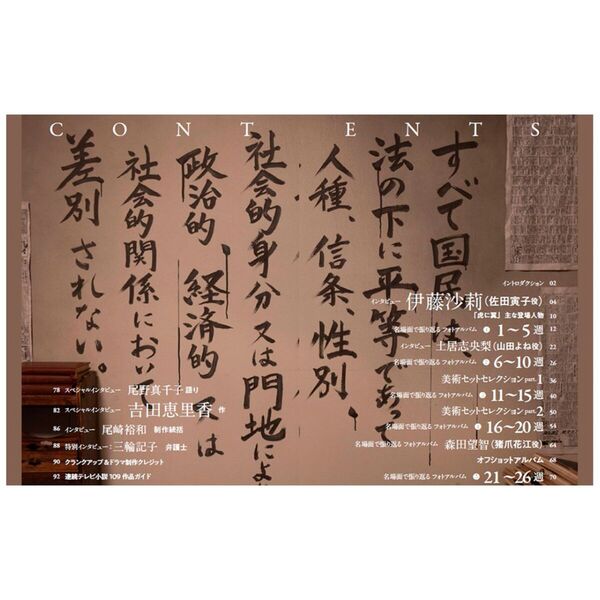 CONTENTS
すべて国民は、
法の下に平等であって
人種、信条、性別、
社会的身分又は門地によ
政治的、経済的又は
社会的関係において
差別されない。
イントロダクション 02
インタビュー 伊藤沙莉(佐田寅子役) 04
「虎に翼」主な登場人物 10
名場面で振り返るフォトアルバム ❶ 1〜5週 12
インタビュー 土居志央梨(山田よね役) 22
名場面で振り返るフォトアルバム ❷ 6〜10週 26
美術セットセレクション part.1 36
名場面で振り返るフォトアルバム ❸ 11〜15週 40
美術セットセレクション part.2 50
名場面で振り返るフォトアルバム ❹ 16〜20週 54
インタビュー 森田望智(猪爪花江役) 64
オフショットアルバム 68
名場面で振り返るフォトアルバム ❺ 21〜26週 70
78 スペシャルインタビュー 尾野真千子 語り
82 スペシャルインタビュー 吉田恵里香 作
86 インタビュー 尾崎裕和 制作統括
88 特別インタビュー:三輪記子 弁護士
90 クランクアップ&ドラマ制作クレジット
92 連続テレビ小説109作品ガイド